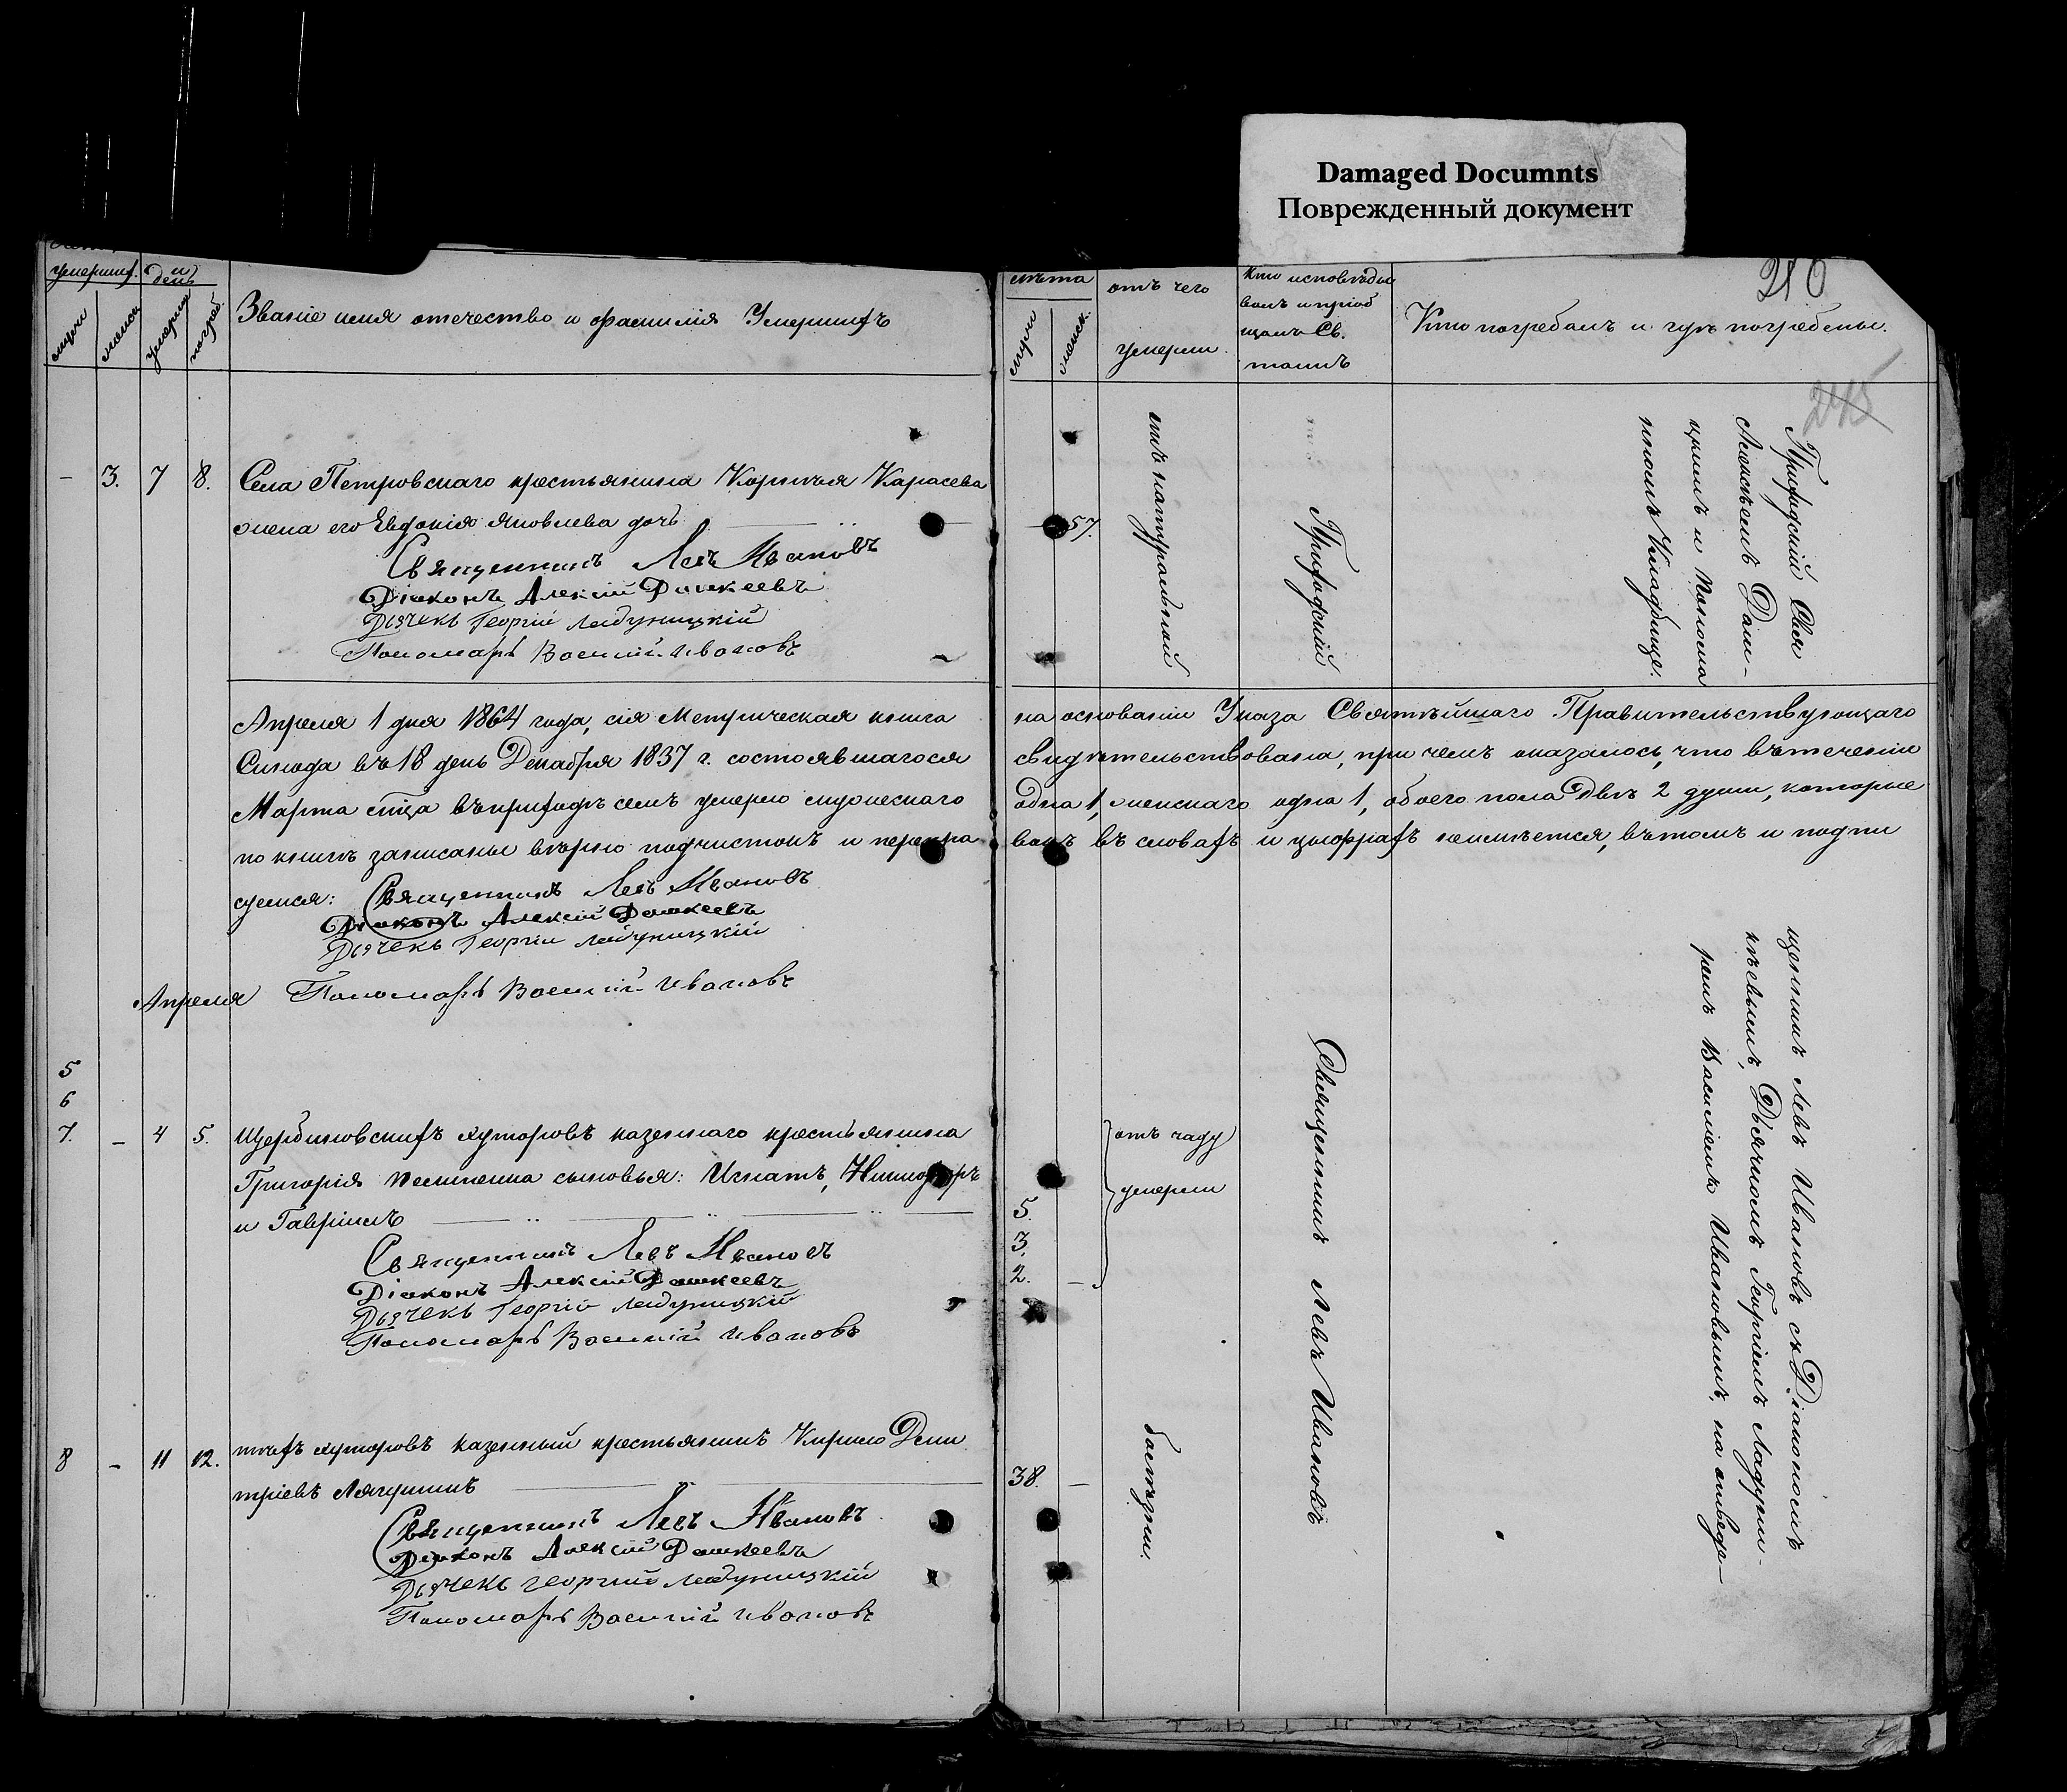 Damaged Documnts
Поврежденный документ
умершихъ
и день
мужеск
женск
умерша
погреб.
Званіе имя отечество и фамилія Умершихъ
лѣта
мужи
женск.
отъ чего
умерли
Кто исповѣды
валъ и пріоб
щалъ Св.
таинъ
Кто погребалъ и гдѣ погребены.
210
245
— 3. 7 8. Села Петровскаго крестьянина Карасева
жена его Евдокія Яковлева дочь
57.
отъ натуральной
Приходскій
Приходскій Свя
Алексѣемъ Даш-
и Понома
Кладбище.
Священникъ Левъ Ивановъ
Діаконъ Алексій Дашкеевъ
Дьячекъ Георгій Ладуницкій
Пономарь Василій Ивановъ
Апреля 1 дня 1864 года, сія Метрическая книга на основаніи Указа Святѣйшаго Правительствующаго
Синода въ 18 день Декабря 1837 г. состоявшагося свидѣтельствована, при чемъ оказалось, что въ теченіи
Марта мѣсяца въ приходѣ семъ умерло мужескаго одна 1, женскаго одна 1, обоего пола двѣ 2 души, которые
по книгѣ записаны вѣрно подчистокъ и перепра вокъ въ словахъ и цыфрахъ неимѣется, въ томъ и подпи
суемся: Священникъ Левъ Ивановъ
Діаконъ Алексій Дашкеевъ
Дьячекъ Георгій Ладуницкій
Пономарь Василій Ивановъ
Апреля
5
6
7. — 4 5. Щербиновскихъ хуторовъ казеннаго крестьянина
Григорія сыновья: Игнатъ, Никифоръ
и Гавріилъ
5.
3.
2. —
отъ чаду
умерли
Священникъ Левъ Ивановъ
щенникъ Левъ Ивановъ съ Діакономъ
кѣевымъ, Дьячкомъ Георгіемъ Ладуни-
ремъ Василіемъ Ивановымъ, на отведе-
Священникъ Левъ Ивановъ
Діаконъ Алексій Дашкеевъ
Дьячекъ Георгій Ладуницкій
Пономарь Василій Ивановъ
8 — 11 12. тѣхъ хуторовъ казенный крестьянинъ Кирило Дими
тріевъ Лягушинъ
38. —
болѣзни.
Священникъ Левъ Ивановъ
Діаконъ Алексій Дашкеевъ
Дьячекъ Георгій Ладуницкій
Пономарь Василій Ивановъ